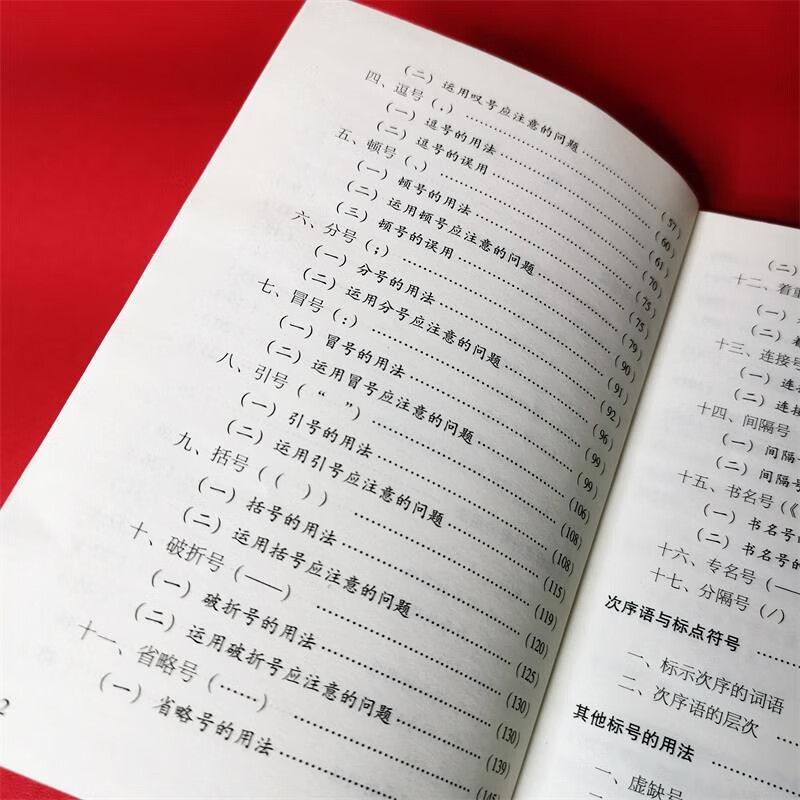 （二）运用叹号应注意的问题……（57）
四、逗号（，）……（60）
（一）逗号的用法……（61）
（二）逗号的误用……（70）
五、顿号（、）……（75）
（一）顿号的用法……（75）
（二）运用顿号应注意的问题……（79）
（三）顿号的误用……（90）
六、分号（；）……（91）
（一）分号的用法……（92）
（二）运用分号应注意的问题……（96）
七、冒号（：）……（99）
（一）冒号的用法……（99）
（二）运用冒号应注意的问题……（106）
八、引号（“ ”）……（108）
（一）引号的用法……（108）
（二）运用引号应注意的问题……（115）
九、括号（（ ））……（119）
（一）括号的用法……（120）
（二）运用括号应注意的问题……（125）
十、破折号（——）……（130）
（一）破折号的用法……（130）
（二）运用破折号应注意的问题……（139）
十一、省略号（……）……（145）
（一）省略号的用法……
2
（二）
十二、着重
（一）
（二）着
十三、连接号
（一）连
（二）连接
十四、间隔号
（一）间隔
（二）间隔号
十五、书名号（《
（一）书名号的
（二）书名号的
十六、专名号（—
十七、分隔号（/）
次序语与标点符号
一、标示次序的词语
二、次序语的层次
其他标号的用法
一、虚缺号